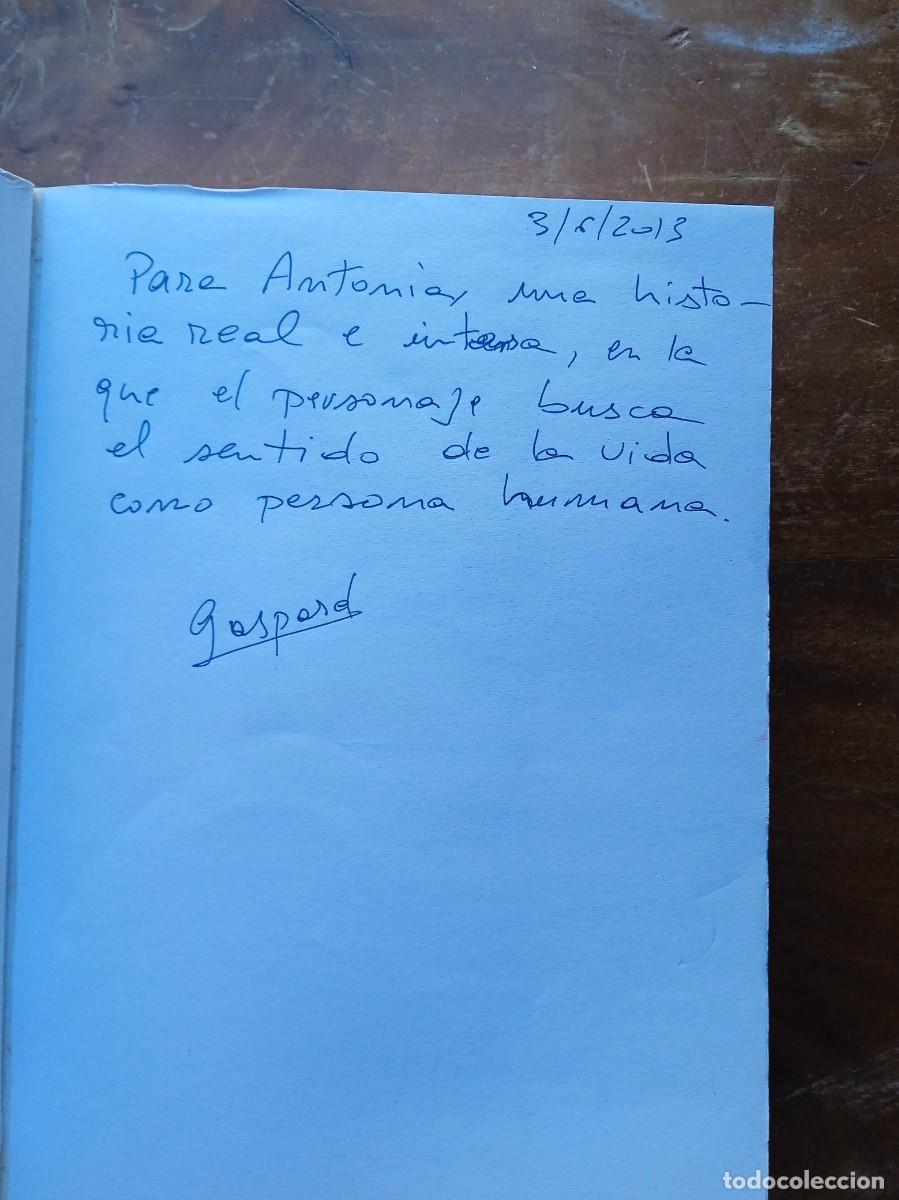 3/6/2013
Para Antonia, una histo-
ria real e intensa, en la
que el personaje busca
el sentido de la vida
como persona humana.
Gaspard
todocoleccion